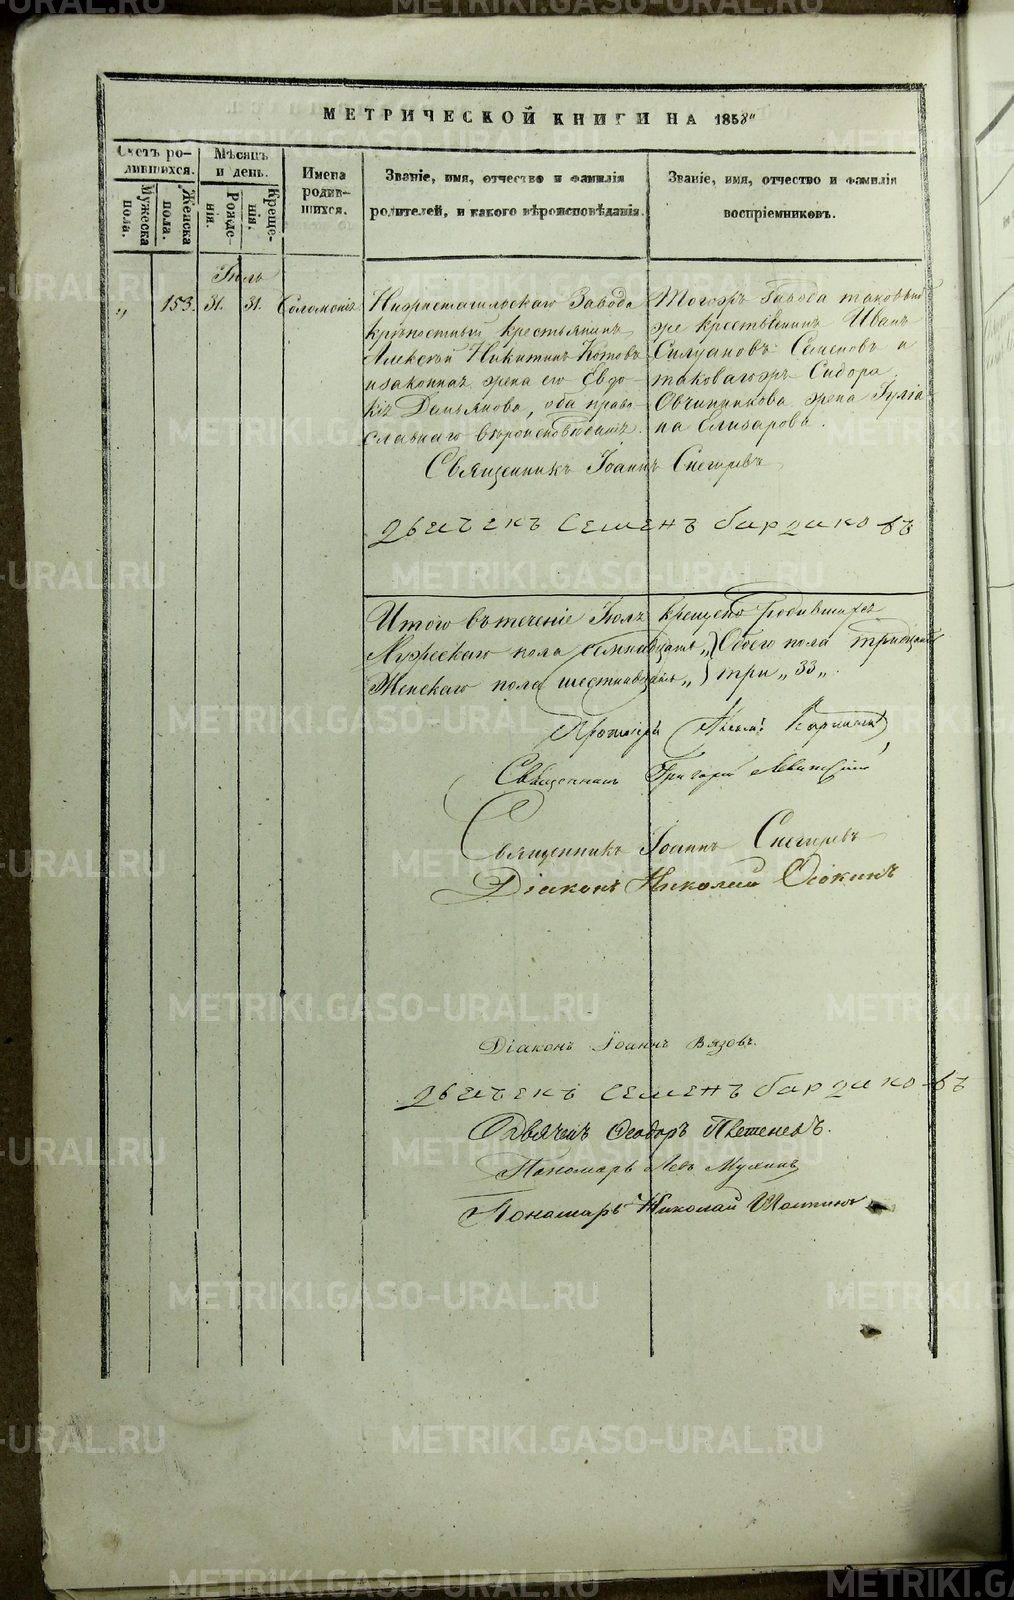 МЕТРИЧЕСКОЙ КНИГИ НА 1858й
Счетъ ро-
дившихся.
Мужеска
пола.
Женска
пола.
Мѣсяцъ
и день.
Рожде-
нія.
Креще-
нія.
Имена
родив-
шихся.
Званіе, имя, отчество и фамилія
родителей, и какого вѣроисповѣданія.
Званіе, имя, отчество и фамилія
воспріемниковъ.
Іюль
„ 153. 31. 31. Соломонія
Нижнетагильскаго Завода
крѣпостный крестьянинъ
Алексѣй Никитинъ Котовъ
и законная жена его Евдо-
кія Дамьянова, оба право-
славнаго вѣроисповѣданія.
Тогожъ Завода таковый
же крестьянинъ Иванъ
Силуановъ Семеновъ и
таковагожъ Сидора
Овчинникова жена Іуліа-
на Елизарова.
Священникъ Іоаннъ Снегиревъ
дьячекъ Семенъ бардаковъ
Итого въ теченіе Іюля крещено родившихся
Мужескаго пола семнадцать „ } Обоего пола тридцать
Женскаго пола шестнадцать „ } три „ 33 „.
Протоіерей
Священникъ Григорій
Священникъ Іоаннъ Снегиревъ
Діаконъ Николай Осокинъ
Діаконъ Іоаннъ Вязовъ.
дьячекъ Семенъ бардаковъ
Ѳеодоръ
Пономарь Левъ Мухинъ
Пономарь Николай
METRIKI.GASO-URAL.RU